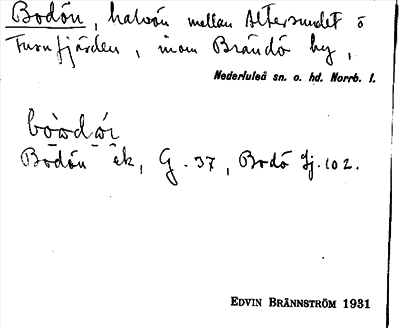 Bodön, halvön mellan Altersundet o
Furufjärden, inom Brändö by,
Nederluleå sn. o. hd. Norrb. l.
Bodön ek, G. 37, Bodö Sj. 102.
EDVIN BRÄNNSTRÖM 1931